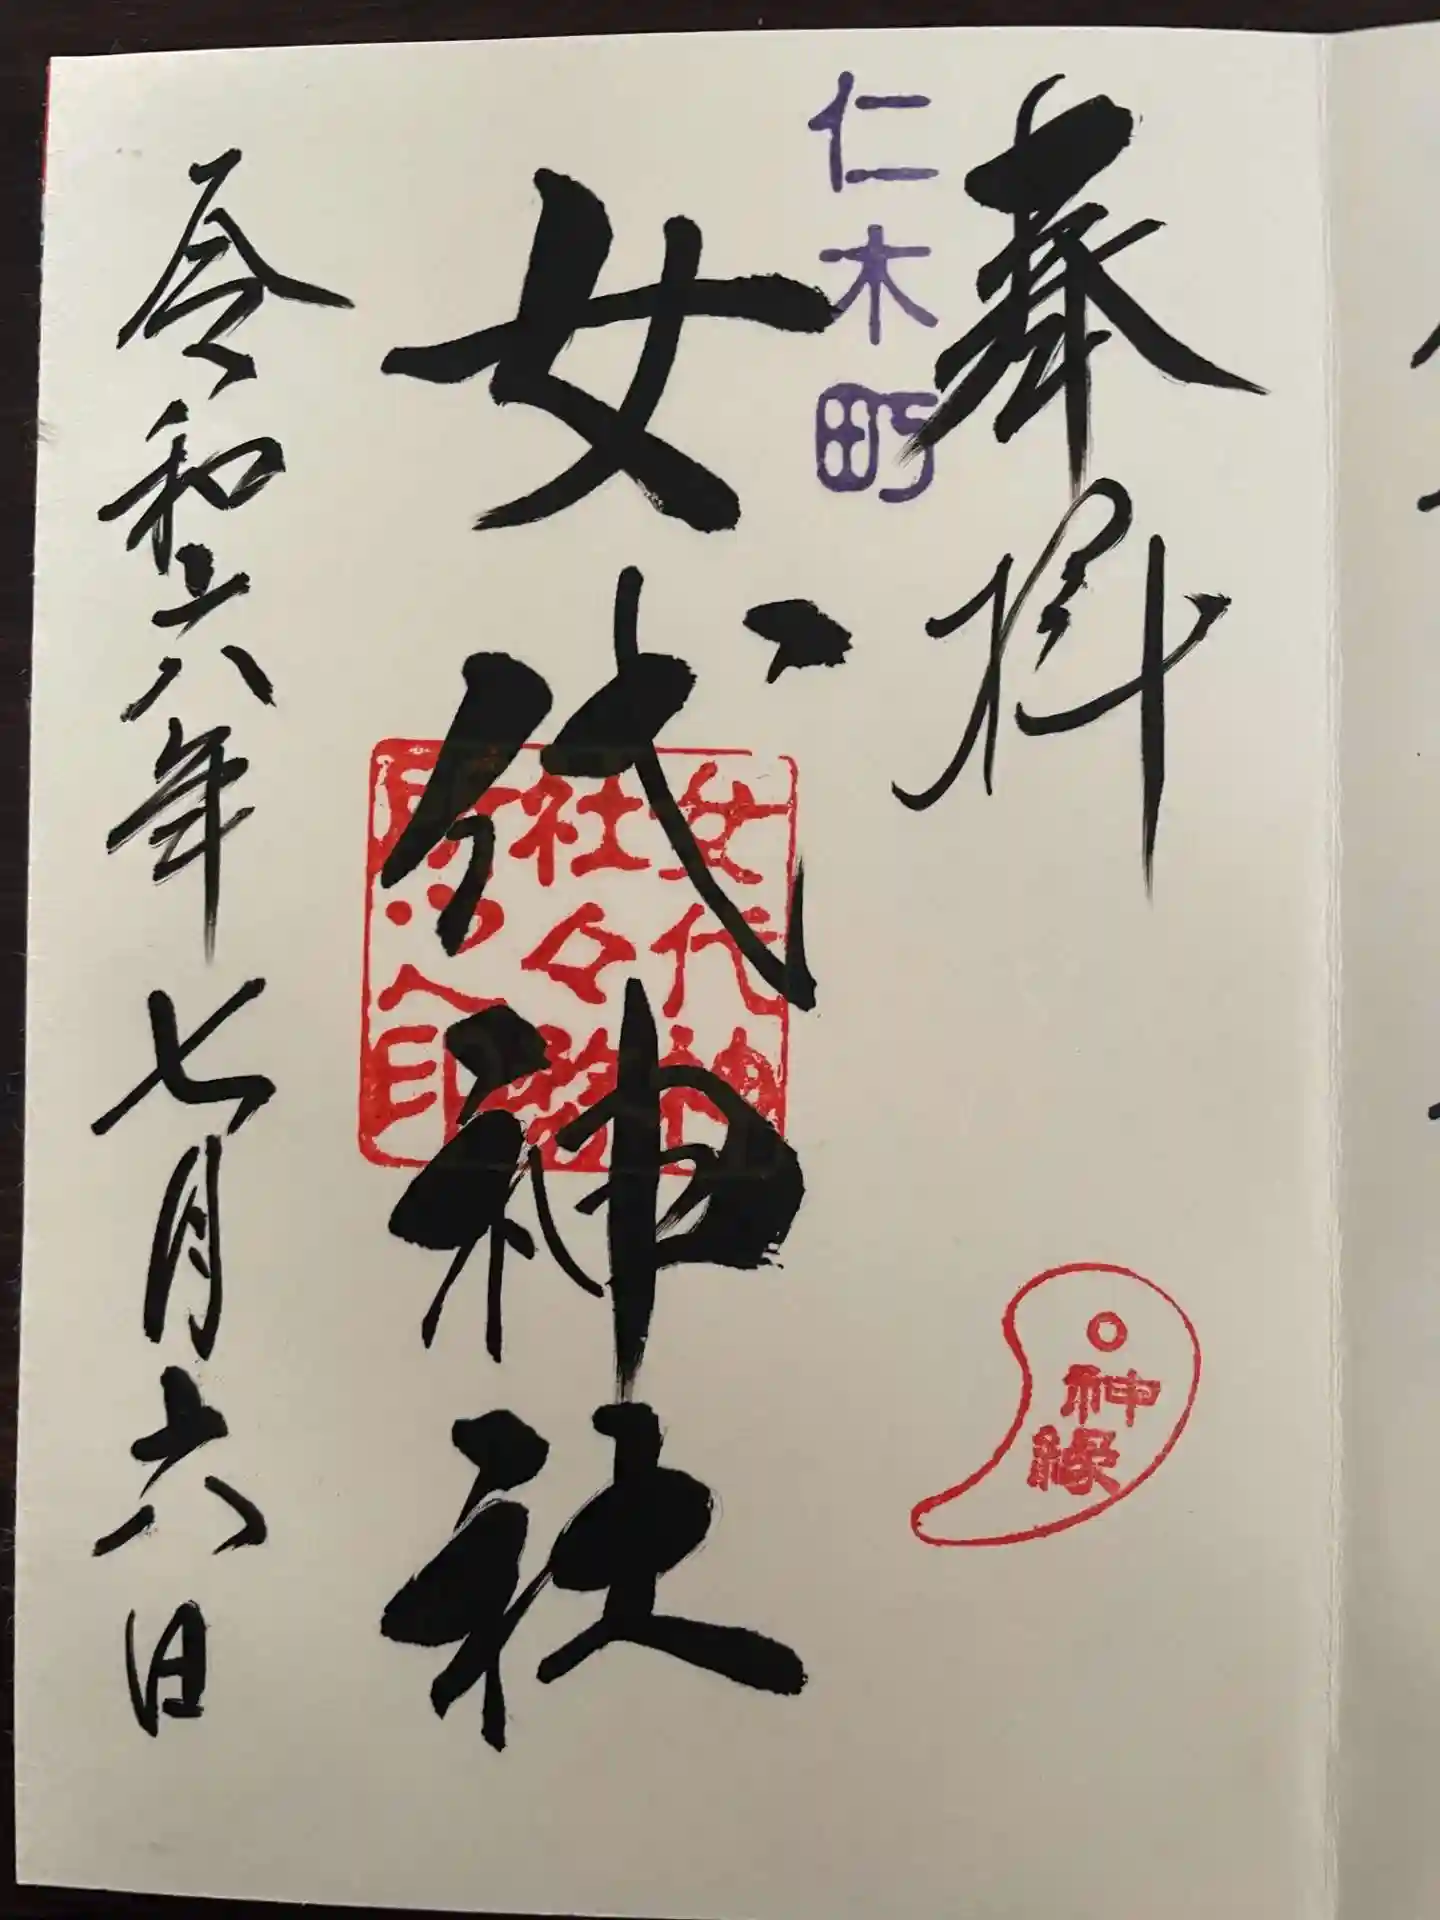 奉拝
仁木町
女代神社
女代神
社々務
所之印
神縁
令和六年七月六日